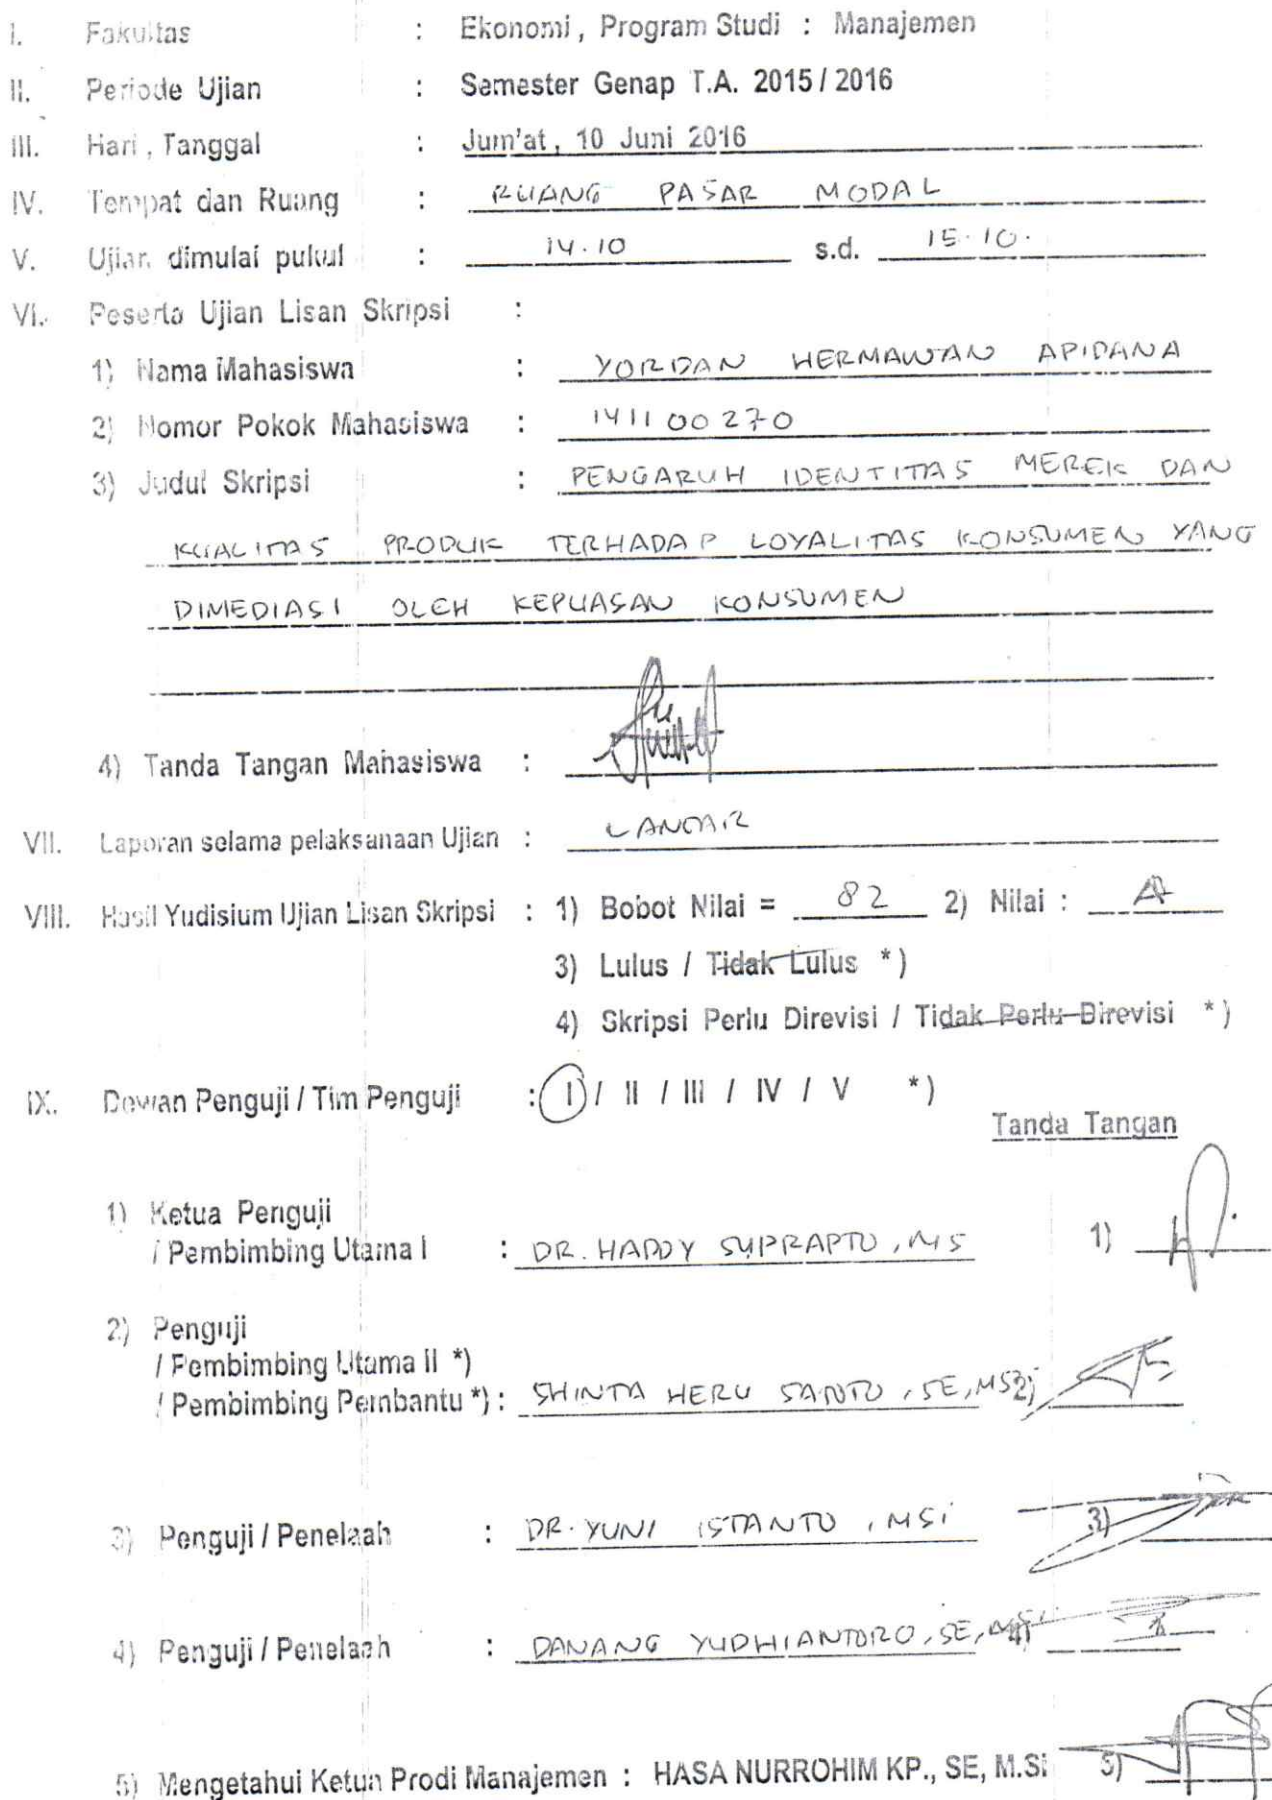 I. Fakultas : Ekonomi, Program Studi : Manajemen
II. Periode Ujian : Semester Genap T.A. 2015 / 2016
III. Hari, Tanggal : Jum'at, 10 Juni 2016
IV. Tempat dan Ruang : RUANG PASAR MODAL
V. Ujian dimulai pukul : 14.10 s.d. 15.10.
VI. Peserta Ujian Lisan Skripsi :
1) Nama Mahasiswa : YORDAN HERMAWAN APIDANA
2) Nomor Pokok Mahasiswa : 141100270
3) Judul Skripsi : PENGARUH IDENTITAS MEREK DAN
KUALITAS PRODUK TERHADAP LOYALITAS KONSUMEN YANG
DIMEDIASI OLEH KEPUASAN KONSUMEN
4) Tanda Tangan Mahasiswa :
VII. Laporan selama pelaksanaan Ujian : LANCAR
VIII. Hasil Yudisium Ujian Lisan Skripsi : 1) Bobot Nilai = 82 2) Nilai : A
3) Lulus / Tidak Lulus *)
4) Skripsi Perlu Direvisi / Tidak Perlu Direvisi *)
IX. Dewan Penguji / Tim Penguji : I / II / III / IV / V *)
Tanda Tangan
1) Ketua Penguji
/ Pembimbing Utama I : DR. HADDY SUPRAPTO, MS 1)
2) Penguji
/ Pembimbing Utama II *)
/ Pembimbing Pembantu *) : SHINTA HERU SANTO, SE, MSi 2)
3) Penguji / Penelaah : DR. YUNI ISTANTO, MSi 3)
4) Penguji / Penelaah : DANANG YUDHIANTORO, SE, MSi 4)
5) Mengetahui Ketua Prodi Manajemen : HASA NURROHIM KP., SE, M.Si 5)